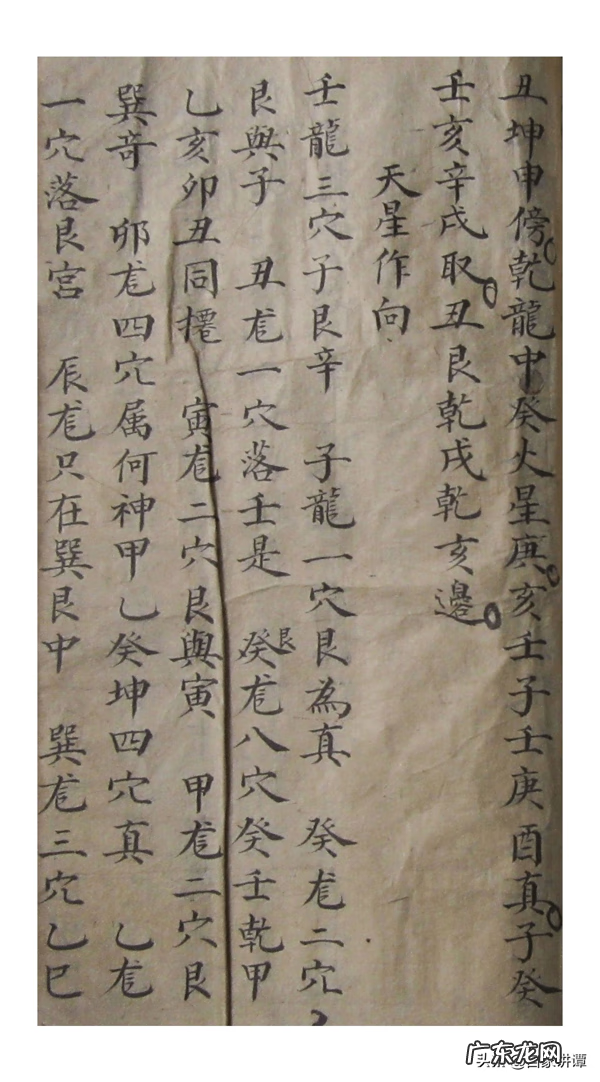 丑坤申傍乾龍中癸火星庚亥壬子壬庚酉真子癸
壬亥辛戌取丑艮乾戌乾亥邊
天星作向
壬龍三穴子艮辛 子龍一穴艮為真 癸尨二穴
艮與子 丑尨一穴落壬是 癸艮尨八穴癸壬乾甲
乙亥卯丑同擇 寅尨二穴艮與寅 甲尨二穴艮
巽奇 卯尨四穴属何神甲乙癸坤四穴真 乙尨
一穴落艮宮 辰尨只在巽艮中 巽尨三穴乙巳
广东龙网